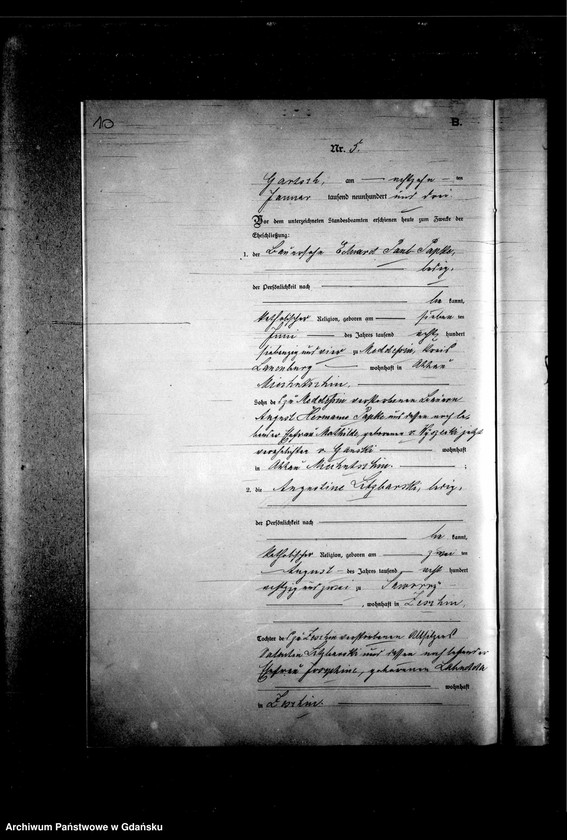 10
B.
Nr. 5.
am achtzehn ten
Januar tausend neunhundert und drei.
Vor dem unterzeichneten Standesbeamten erschienen heute zum Zwecke der
Eheschließung:
1. der Bauersohn Eduard Paul Papke,
ledig,
der Persönlichkeit nach
be kannt,
katholischer Religion, geboren am sieben ten
Juni des Jahres tausend acht hundert
siebenzig und vier zu Kreis
Lauenburg wohnhaft in Abbau
Sohn de verstorbenen Bauern
August Hermann Papke und dessen noch le-
benden Ehefrau Mathilde, geborenen v. jetzt
verehelichten v. wohnhaft
in Abbau ;
2. die Augustine Litzbarski, ledig,
der Persönlichkeit nach
be kannt,
katholischer Religion, geboren am zwei ten
August des Jahres tausend acht hundert
achtzig und zwei zu
, wohnhaft in Zeschin,
Tochter de zu Zeschin verstorbenen Altsitzers
Valentin Litzbarski und dessen noch lebenden
Ehefrau Josephine, geborenen
wohnhaft
in Zeschin.
Archiwum Państwowe w Gdańsku